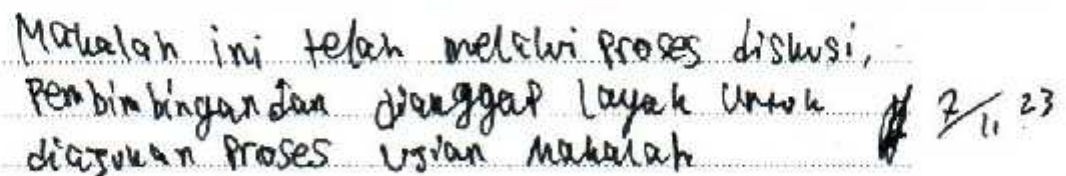 Makalah ini telah melalui proses diskusi,
Pembimbingan dan dianggap layak untuk 7/11 23
diajukan proses ujian makalah